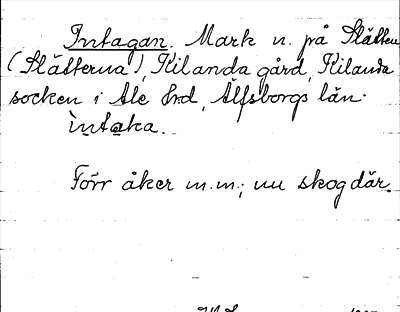 Intagan. Mark n. på Slätten
(Slätterna), Kilanda gård, Kilanda
socken i Ale hrd, Älfsborgs län.
ìntaka.
Förr åker m.m.; nu skog där.